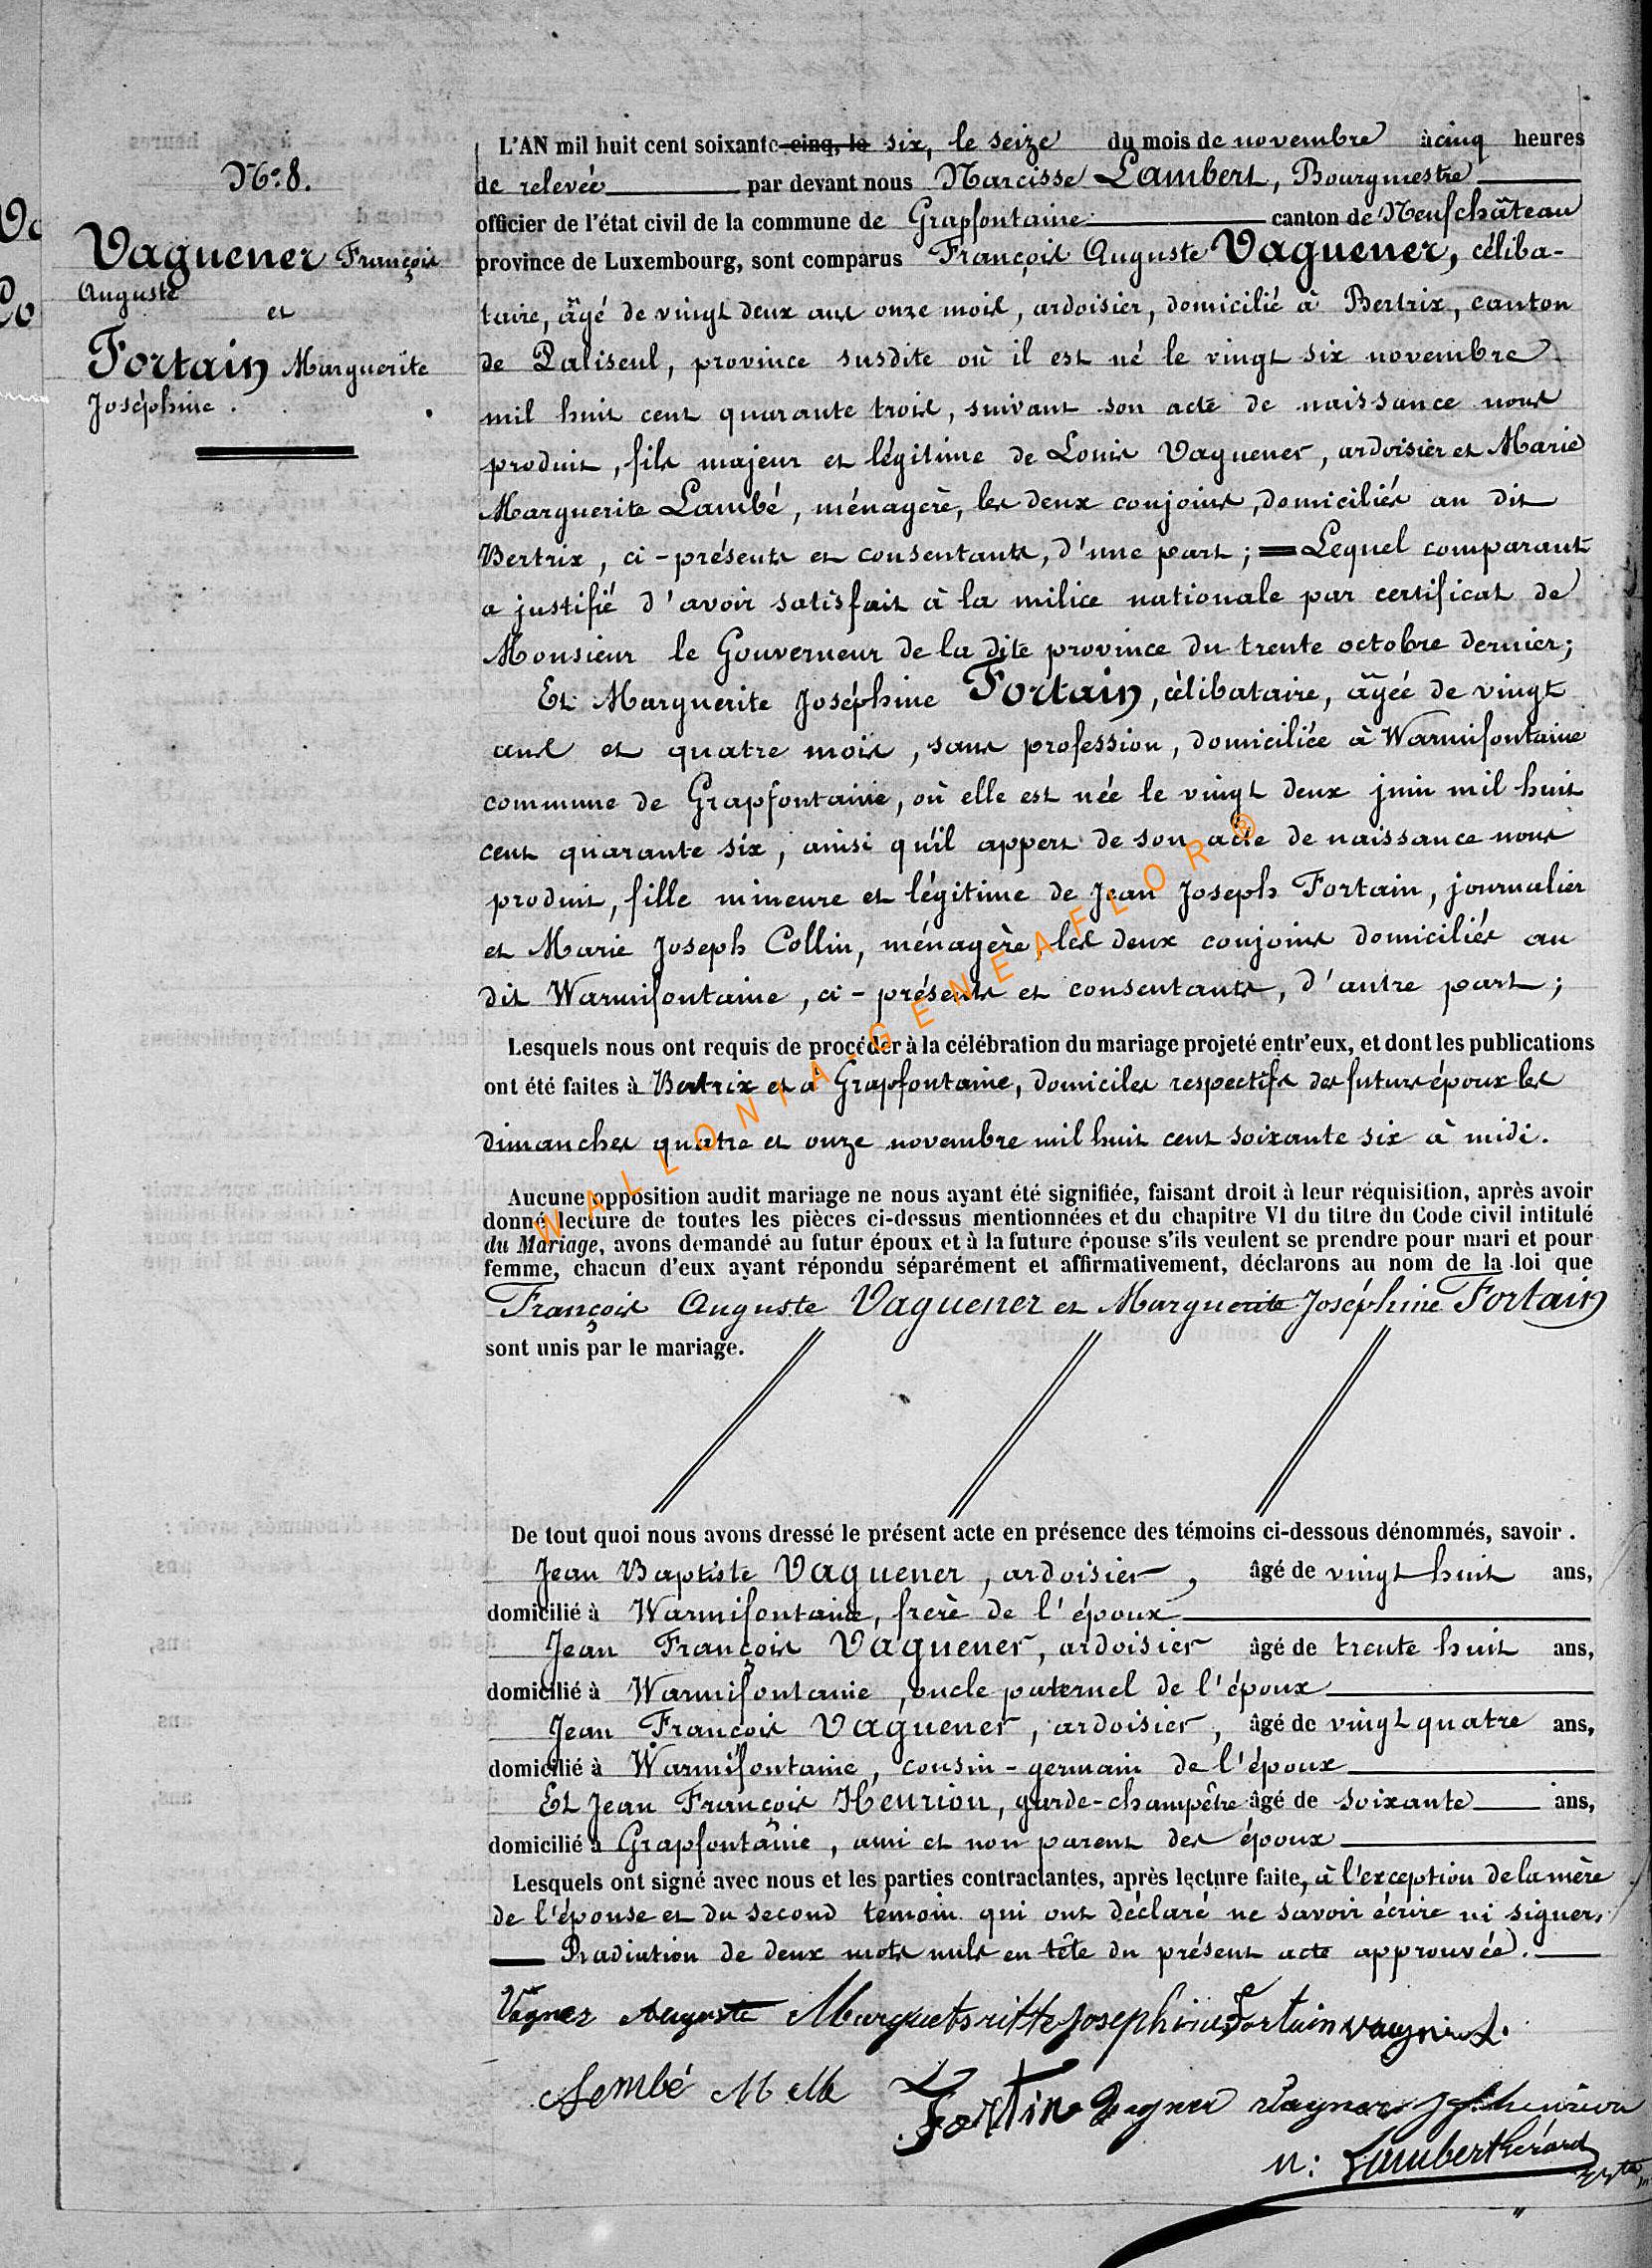 N° 8.
Vaguener François
Auguste
et
Fortain Marguerite
Joséphine.
L'AN mil huit cent soixante cinq, le six, le seize du mois de novembre à cinq heures
de relevée par devant nous Narcisse Lambert, Bourgmestre
officier de l'état civil de la commune de Grapfontaine canton de Neufchâteau
province de Luxembourg, sont comparus François Auguste Vaguener, céliba-
taire, âgé de vingt deux ans onze mois, ardoisier, domicilié à Bertrix, canton
de Paliseul, province susdite où il est né le vingt six novembre
mil huit cent quarante trois, suivant son acte de naissance nous
produit, fils majeur et légitime de Louis Vaguener, ardoisier et Marie
Marguerite Lambé, ménagère, les deux conjoins, domiciliés au dit
Bertrix, ci-présents et consentants, d'une part; Lequel comparant
a justifié d'avoir satisfait à la milice nationale par certificat de
Monsieur le Gouverneur de la dite province du trente octobre dernier;
Et Marguerite Joséphine Fortain, célibataire, âgée de vingt
ans et quatre mois, sans profession, domiciliée à Warmifontaine
commune de Grapfontaine, où elle est née le vingt deux juin mil huit
cent quarante six, ainsi qu'il appert de son acte de naissance nous
produit, fille mineure et légitime de Jean Joseph Fortain, journalier
et Marie Joseph Collin, ménagère, les deux conjoins domiciliés au
dit Warmifontaine, ci-présents et consentants, d'autre part;
Lesquels nous ont requis de procéder à la célébration du mariage projeté entr'eux, et dont les publications
ont été faites à Bertrix et à Grapfontaine, domiciles respectifs des futurs époux les
dimanches quatre et onze novembre mil huit cent soixante six à midi.
WALLONIA-GENEAFLOR®
Aucune opposition audit mariage ne nous ayant été signifiée, faisant droit à leur réquisition, après avoir
donné lecture de toutes les pièces ci-dessus mentionnées et du chapitre VI du titre du Code civil intitulé
du Mariage, avons demandé au futur époux et à la future épouse s'ils veulent se prendre pour mari et pour
femme, chacun d'eux ayant répondu séparément et affirmativement, déclarons au nom de la loi que
François Auguste Vaguener et Marguerite Joséphine Fortain
sont unis par le mariage.
De tout quoi nous avons dressé le présent acte en présence des témoins ci-dessous dénommés, savoir.
Jean Baptiste Vaguener, ardoisier, âgé de vingt huit ans,
domicilié à Warmifontaine, frère de l'époux
Jean François Vaguener, ardoisier âgé de trente huit ans,
domicilié à Warmifontaine, oncle paternel de l'époux
Jean François Vaguener, ardoisier, âgé de vingt quatre ans,
domicilié à Warmifontaine, cousin-germain de l'époux
Et Jean François Henrion, garde-champêtre âgé de soixante ans,
domicilié à Grapfontaine, ami et non parent des époux
Lesquels ont signé avec nous et les parties contractantes, après lecture faite, à l'exception de la mère
de l'épouse et du second témoin qui ont déclaré ne savoir écrire ni signer.
Radiation de deux mots nuls en tête du présent acte approuvée.
Vagner Auguste Josephine Fortain
Lembé M M
Fortin Vagner Vagner henrion
N: Lambert